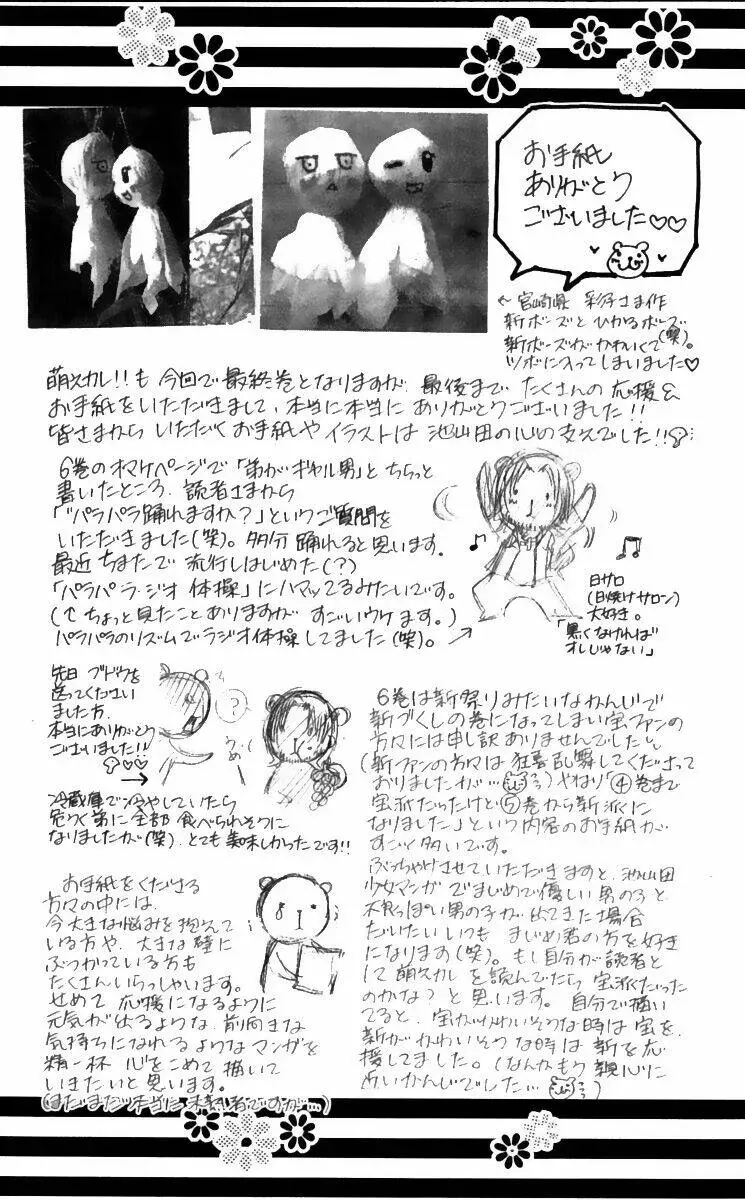 お手紙
ありがとう
ございました♡♡
← 宮崎県 彩子さま作
新ボーズとひかるボーズ
新ボーズがかわいくて(笑)。
ツボに入ってしまいました♡
萌えカレ!!も今回で最終巻となりますが、最後までたくさんの応援&
お手紙をいただきまして、本当に本当にありがとうございました!!
皆さまからいただくお手紙やイラストは池山田の心の支えでした!!
6巻のオマケページで「弟がギャル男」とちらっと
書いたところ、読者さまから
「"パラパラ踊れますか?」というご質問を
いただきました(笑)。多分踊れると思います。
最近ちまたで流行しはじめた(?)
「パラパラ・ラジオ体操」にハマッてるみたいです。
(↑ちょっと見たことありますがすごいウケます。)
パラパラのリズムでラジオ体操してました(笑)。
日サロ
(日焼けサロン)
大好き。
「黒くなければ
オレじゃない」
先日ブドウを
送ってください
ました方、
本当にありがとう
ございました!!
♡♡
?
うめぇ
冷蔵庫で冷やしていたら
危うく弟に全部食べられそうに
なりましたが(笑)、とても美味しかったです!!
6巻は新祭りみたいなかんじで
新づくしの巻になってしまい宝ファンの
方々には申し訳ありませんでした
(新ファンの方々は狂喜乱舞してくださって
おりましたが…)やはり「④巻まで
宝派だったけど⑤巻から新派に
なりました」という内容のお手紙が
すごく多いです。
ぶっちゃけさせていただきますと、池山田
少女マンガでまじめで優しい男の子と
不良っぽい男の子が出てきた場合
だいたいいつもまじめ君の方を好き
になります(笑)。もし自分が読者と
して萌えカレを読んでたら宝派だった
のかな?と思います。自分で描い
てると、宝がかわいそうな時は宝を、
新がかわいそうな時は新を応
援してました。(なんかもう親心に
近いかんじでした…)
お手紙をくださる
方々の中には、
今大きな悩みを抱えて
いる方や、大きな壁に
ぶつかっている方も
たくさんいらっしゃいます。
せめて応援になるように
元気が出るような、前向きな
気持ちになれるようなマンガを
精一杯心をこめて描いて
いきたいと思います。
(まだまだ本当に未熟者ですが…)